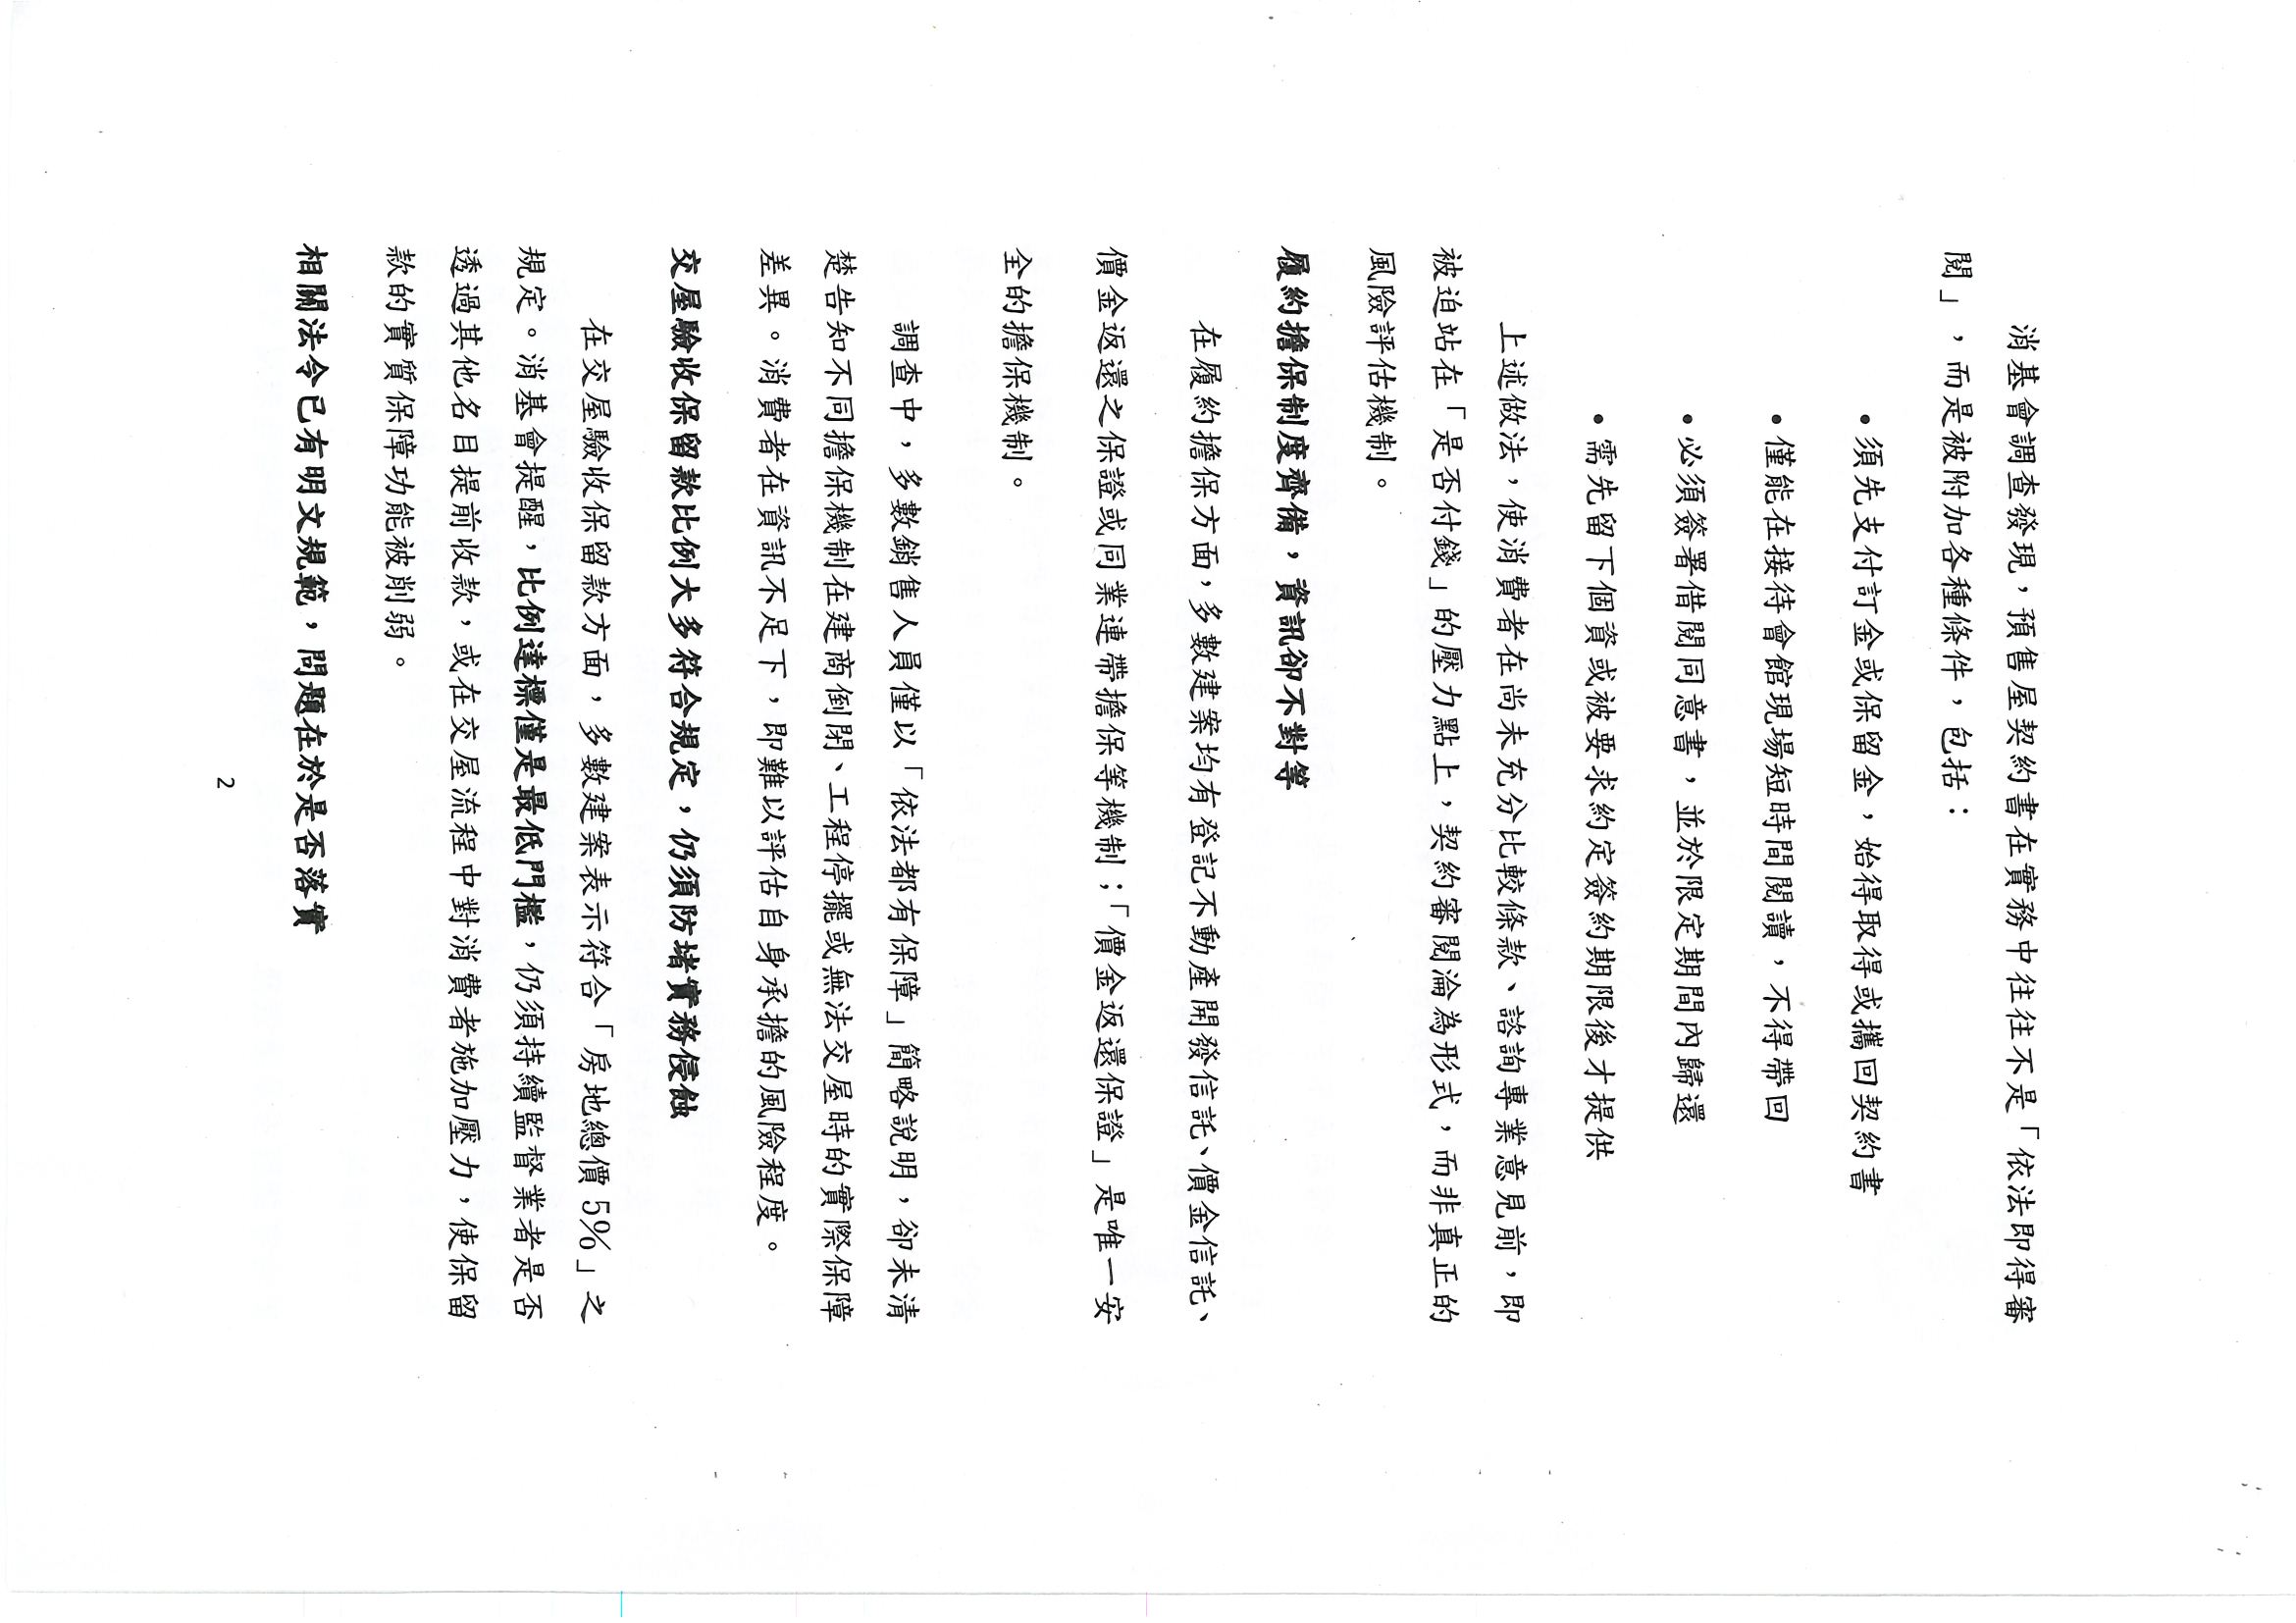 消基會調查發現，預售屋契約書在實務中往往不是「依法即得審
閱」，而是被附加各種條件，包括：
• 須先支付訂金或保留金，始得取得或攜回契約書
• 僅能在接待會館現場短時間閱讀，不得帶回
• 必須簽署借閱同意書，並於限定期間內歸還
• 需先留下個資或被要求約定簽約期限後才提供
上述做法，使消費者在尚未充分比較條款、諮詢專業意見前，即
被迫站在「是否付錢」的壓力點上，契約審閱淪為形式，而非真正的
風險評估機制。
履約擔保制度齊備，資訊卻不對等
在履約擔保方面，多數建案均有登記不動產開發信託、價金信託、
價金返還之保證或同業連帶擔保等機制；「價金返還保證」是唯一安
全的擔保機制。
調查中，多數銷售人員僅以「依法都有保障」簡略說明，卻未清
楚告知不同擔保機制在建商倒閉、工程停擺或無法交屋時的實際保障
差異。消費者在資訊不足下，即難以評估自身承擔的風險程度。
交屋驗收保留款比例大多符合規定，仍須防堵實務侵蝕
在交屋驗收保留款方面，多數建案表示符合「房地總價 5%」之
規定。消基會提醒，比例達標僅是最低門檻，仍須持續監督業者是否
透過其他名目提前收款，或在交屋流程中對消費者施加壓力，使保留
款的實質保障功能被削弱。
相關法令已有明文規範，問題在於是否落實
2